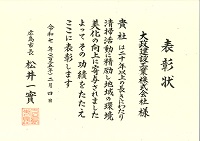 表彰状
大政建設工業株式会社 様
貴社は二十年以上の長きにわたり
清掃活動に精励し地域の環境
美化の向上に寄与されました
よってその功績をたたえ
ここに表彰します
令和七年(二〇二五)二月四日
広島市長 松井一實